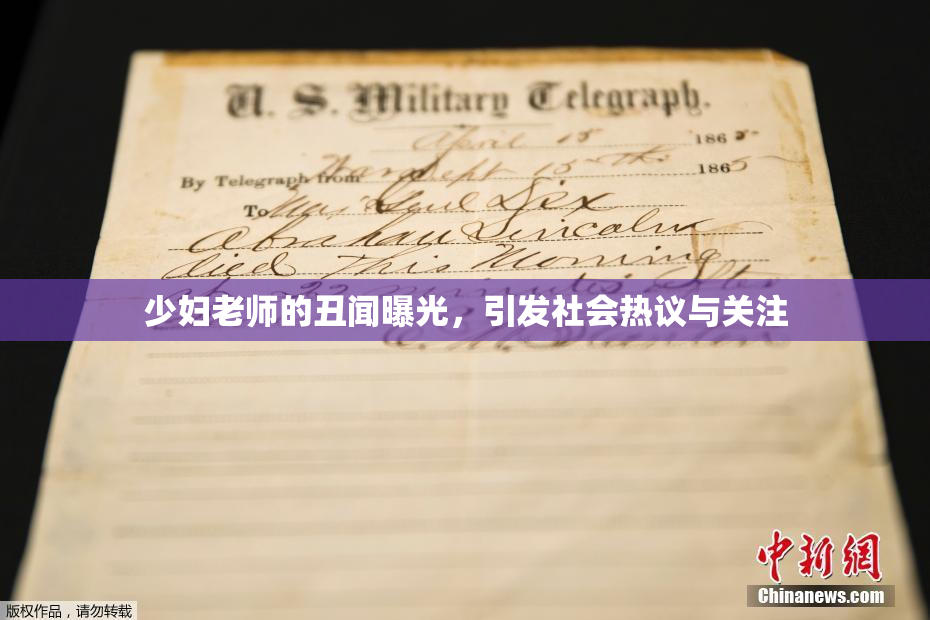 U. S. Military Telegraph.
April 15 1865
By Telegraph from War Dept 15 1865
To Maj Genl Dix
Abraham Lincoln
died This Morning
at 22 minutes after
少妇老师的丑闻曝光，引发社会热议与关注
E. M. Stanton
中新网
Chinanews.com
版权作品，请勿转载